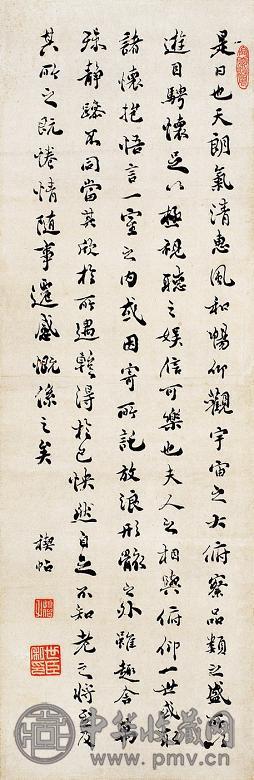 是日也天朗氣清惠風和暢仰觀宇宙之大俯察品類之盛所以
遊目騁懷足以極視聽之娛信可樂也夫人之相與俯仰一世或取
諸懷抱悟言一室之內或因寄所託放浪形骸之外雖趣舍萬
殊靜躁不同當其欣於所遇暫得於己快然自足不知老之將至及
其所之既倦情隨事遷感慨係之矣
禊帖
中华收藏网
www.pmv.cn